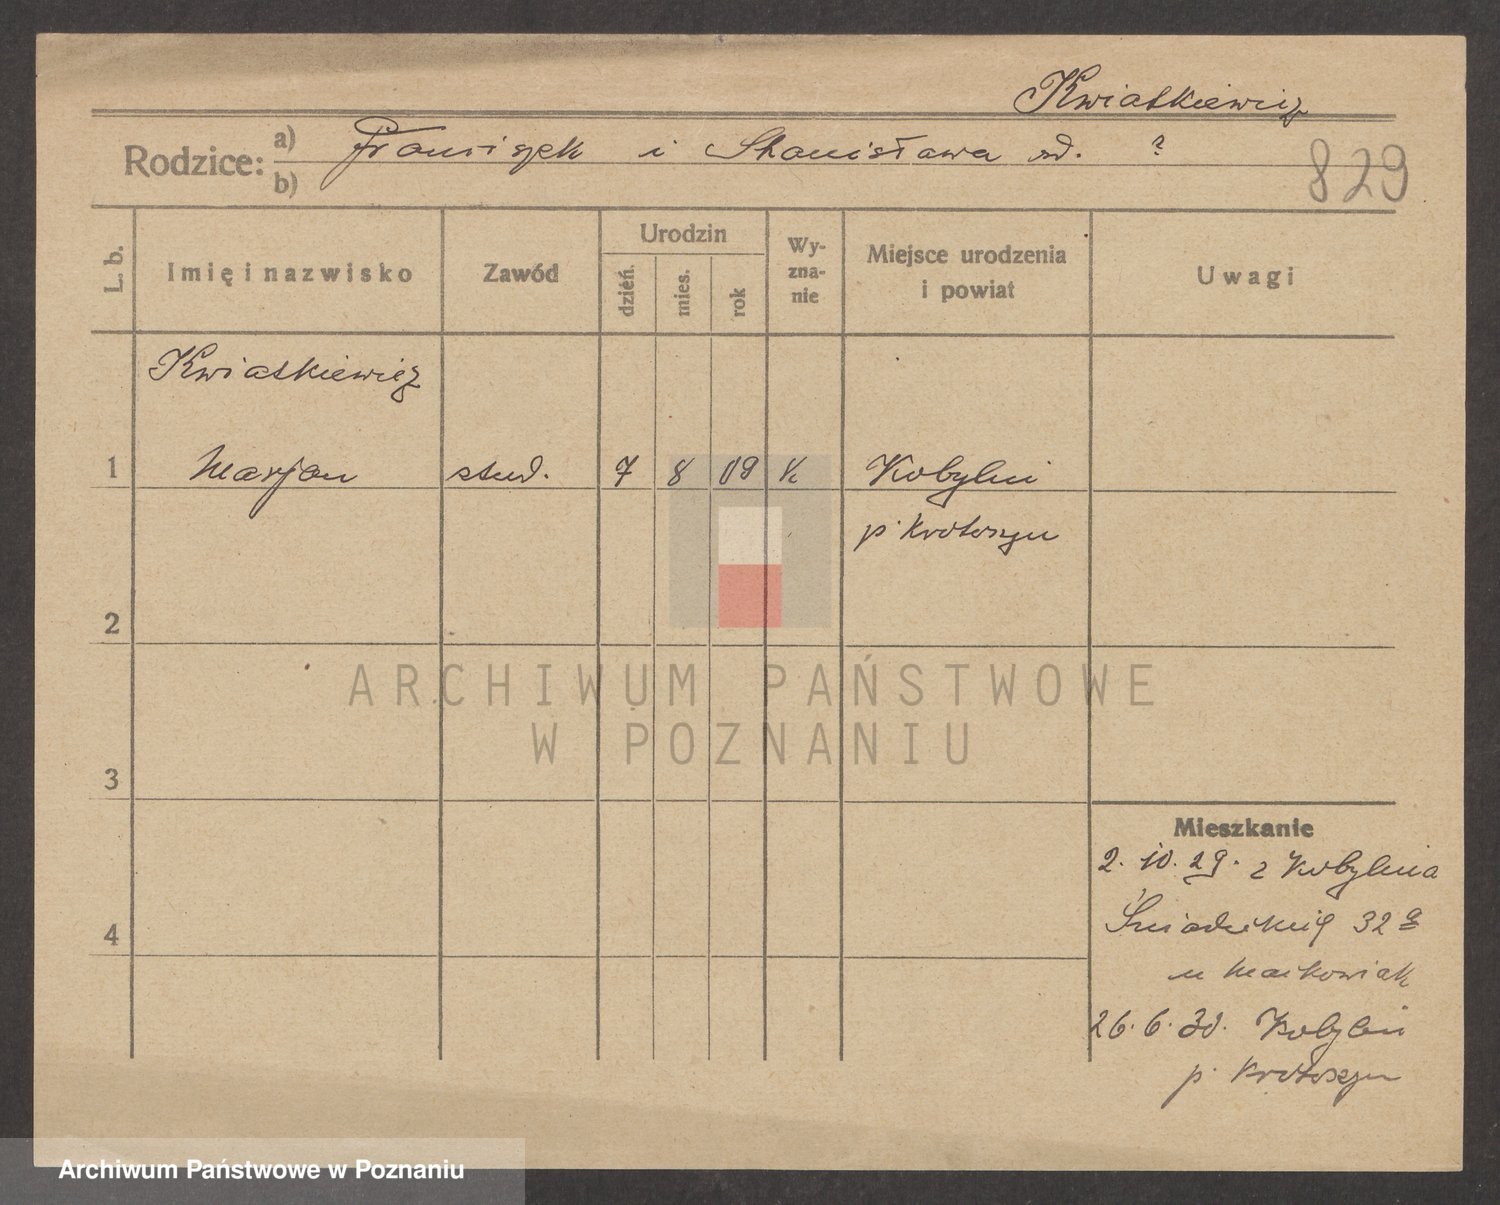 Kwiatkiewicz
Rodzice: a) Franciszek i Stanisława ?
b)
829
L. b. Imię i nazwisko Zawód Urodzin dzień. mies. rok Wy-zna-nie Miejsce urodzenia i powiat Uwagi
Kwiatkiewicz
1 Marjan stud. 7 8 09 k Kobylin
p. Krotoszyn
2
ARCHIWUM PAŃSTWOWE
W POZNANIU
3
Mieszkanie
2. 10. 29. z Kobylina
4 Śniadeckich 32 a
u Maćkowiak
26. 6. 30. Kobylin
p. Krotoszyn
Archiwum Państwowe w Poznaniu